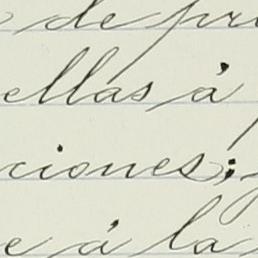 de pri
ellas á
ciones;
e á la